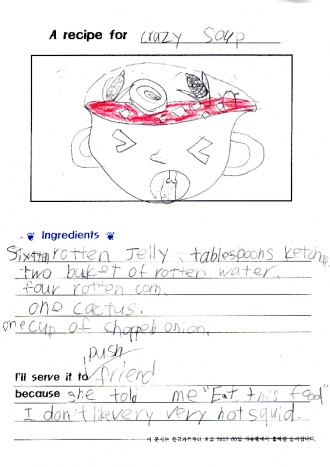 A recipe for crazy Soup
Ingredients
Sixteen rotten Jelly, tablespoons ketchup.
two buket of rotten water.
four rotten corn.
one cactus.
one cup of chopped onion.
push
I'll serve it to friend
because she told me "Eat this food"
I don't like very very hot squid.